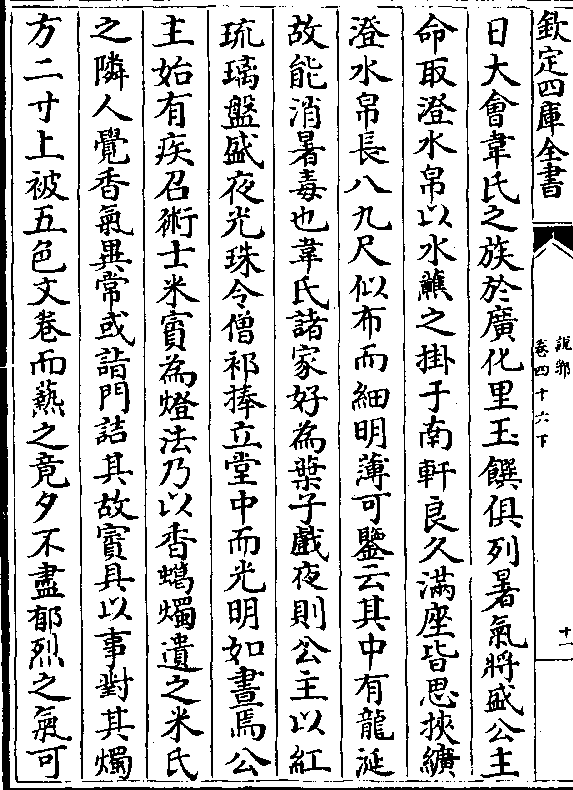 欽定四庫全書
說郛
卷四十六下
十一
日大會韋氏之族於廣化里玉饌俱列暑氣將盛公主
命取澄水帛以水蘸之掛于南軒良久滿座皆思挾纊
澄水帛長八九尺似布而細明薄可鑒云其中有龍涎
故能消暑毒也韋氏諸家好為葉子戲夜則公主以紅
琉璃盤盛夜光珠令僧祁捧立堂中而光明如晝焉公
主始有疾召術士米賨為燈法乃以香蠟燭遺之米氏
之隣人覺香氣異常或詣門詰其故賨具以事對其燭
方二寸上被五色文卷而爇之竟夕不盡郁烈之氣可